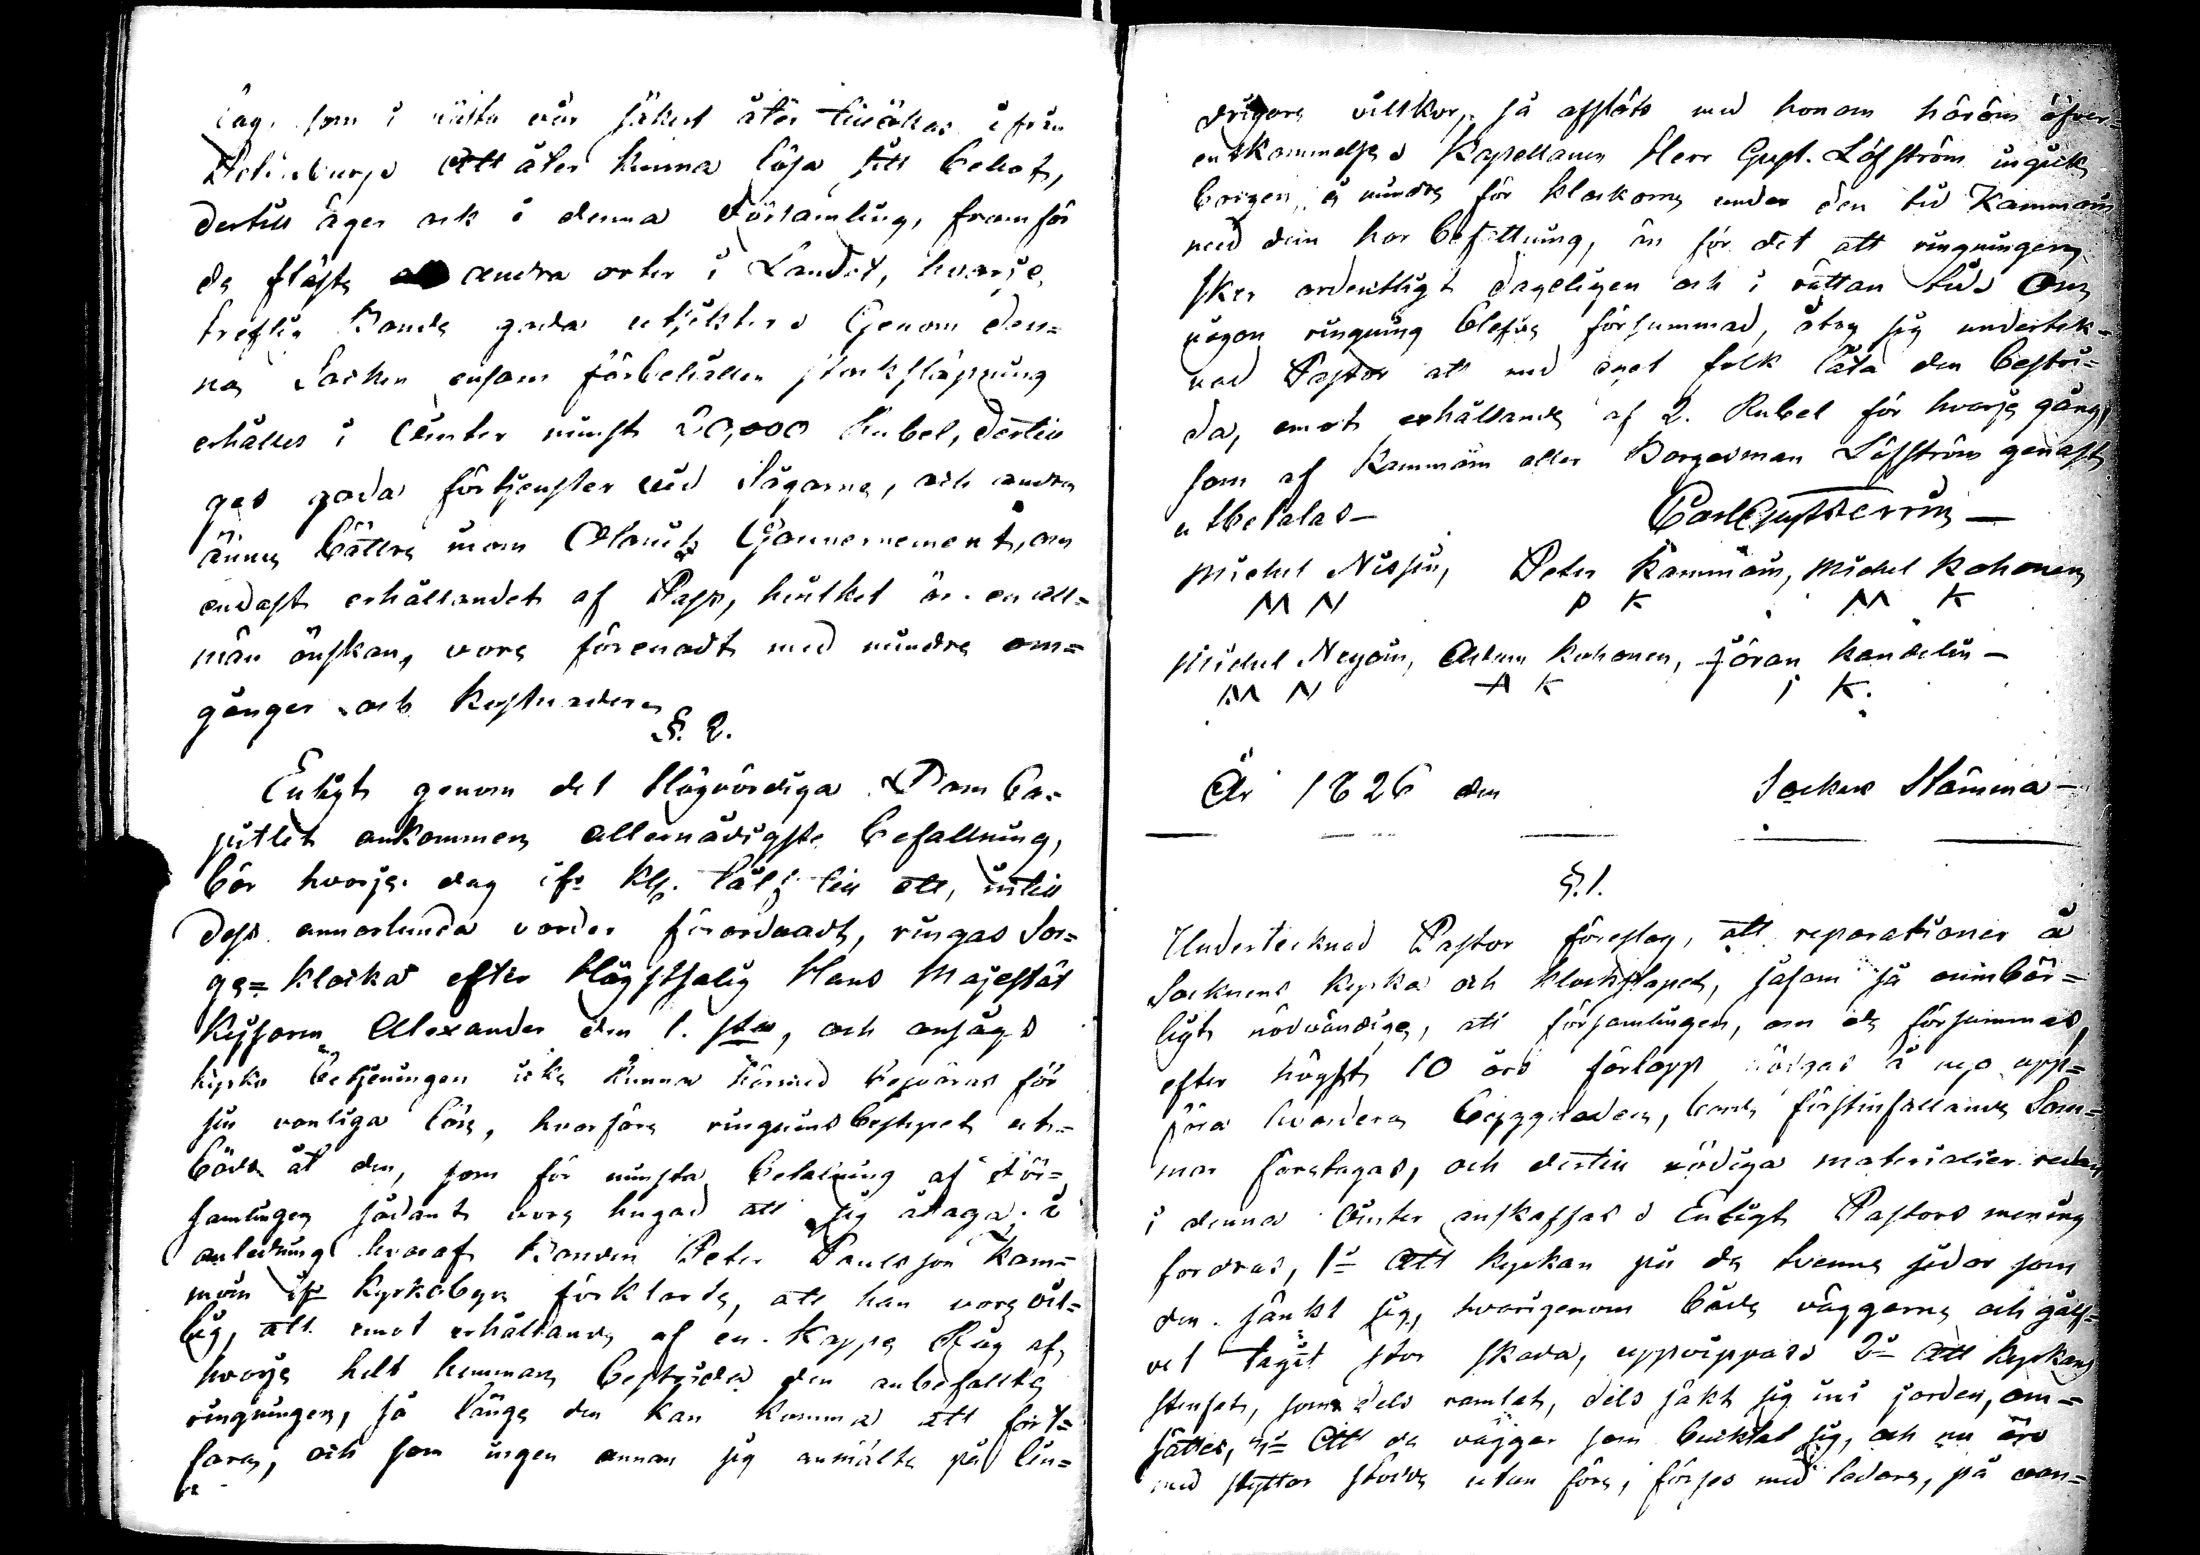 som i nästa vår säkert åter tillökas ifrån
att åter kunna lösa sitt behof,
dertill äger ock i denna Församling, framför
de fläste andra orter i Landet, hvarje
treflig Bonde goda utsikter. Genom den=
na Socken ensam förbehållen stocksläpning
erhålles i Winter minst 20,000 Rubel, dertill
ges goda förtjenster vid Sågarne, och andra
ännu bättre inom Olonets Gouvernement, om
endast erhållandet af Pass, hvilket är en all=
män önskan, vore förenadt med mindre om=
gånger och kostnader.
§. 2.
Enligt genom det Högvördiga Dom Ca=
pitlet ankommen allernådigste befallning,
bör hvarje dag ifr. Kl. tålf till ett, intill
dess annorlunda varder förordnadt, ringas Sor=
ge=klocka efter Högstsalig Hans Majestät
Kejsaren Alexander den 1. sta, och ansågs
kyrko betjeningen icke kunna härmed besväras för
sin vanliga lön, hvarföre ringnings bestyret ut=
böds åt den, som för minsta betalning af För=
samlingen sådant vore hugad att sig åtaga. i
anledning hvaraf Bonden Peter Paulsson Kam=
möin ifr Kyrkobyn förklarde, att han vore vil=
lig, att emot erhållande af en Kappe Råg af
hvarje helt hemman bestrida den anbefallte
ringningen, så länge den kan komma att fort=
fara, och som ingen annan sig anmälte på lin=
drigare villkor, så afslöts med honom härom öfver=
enskommelse. Kapellanen Herr Gust. Löfström ingick
borgen, ej mindre för klockorne under den tid Kammöin
med dem har befattning, än för det att ringningen
sker ordentligt dageligen och i rättan tid. Om
någon ringning blefve försummad, åtog sig undertek=
nad Pastor att med eget folk låta den bestri=
da, emot erhållande af 2. Rubel för hvarje gång,
som af Kammöin eller Borgesman Löfström genast
utbetalas—
Carl Gust
Michel Nissin, Peter Kammöin, Michel Kohonen
M N P K M K
Michel Adam Kohonen, Jöran Kandelin—
M N A K J K.
År 1826 den Socken Stämma—
§.1.
Undertecknad Pastor föreslog, att reparationer å
Socknens kyrka och klockstapel, såsom så oumbär=
ligt nödvändige, att församlingen, om de försummas,
efter högst 10 års förlopp nödgas å nyo upp=
föra hvardera byggnaden, borde förstinfallande Som=
mar företagas, och dertill nödiga materialier redan
i denna Winter anskaffas. Enligt Pastors mening
fordras, 1= att kyrkan på de tvenne sidor som
den sänkt sig, hvarigenom både väggarne och golf=
vet tagit stor skada, uppvippas. 2= att kyrkans
stenfot, som dels ramlat, dels säkt sig in i jorden, om=
sättes, 3= att de väggar som bucktat sig, och nu äro
med stöttor stödde utan före, förses med ledare, på